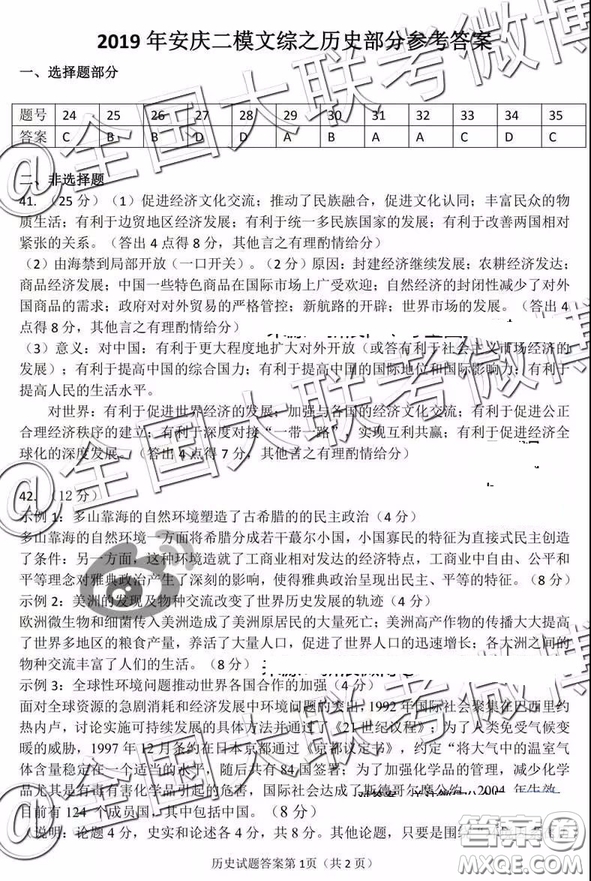 2019 年安庆二模文综之历史部分参考答案
一、选择题部分
题号 24 25 26 27 28 29 30 31 32 33 34 35
答案 C B B D D A B A A C D C
二、非选择题
41. （25 分）（1）促进经济文化交流；推动了民族融合，促进文化认同；丰富民众的物
质生活；有利于边贸地区经济发展；有利于统一多民族国家的发展；有利于改善两国相对
紧张的关系。（答出 4 点得 8 分，其他言之有理酌情给分）
（2）由海禁到局部开放（一口开关）。（2 分）原因：封建经济继续发展；农耕经济发达；
商品经济发展；中国一些特色商品在国际市场上广受欢迎；自然经济的封闭性减少了对外
国商品的需求；政府对对外贸易的严格管控；新航路的开辟；世界市场的发展。（答出 4
点得 8 分，其他言之有理酌情给分）
（3）意义：对中国：有利于更大程度地扩大对外开放（或答有利于社会主义市场经济的
发展）；有利于提高中国的综合国力；有利于提高中国的国际地位和国际影响力；有利于
提高人民的生活水平。
对世界：有利于促进世界经济的发展；加强与各国的经济文化交流；有利于促进公正
合理经济秩序的建立；有利于深度对接“一带一路”，实现互利共赢；有利于促进经济全
球化的深度发展。（答出 4 点得 7 分，其他言之有理酌情给分）
42. （12 分）
示例 1：多山靠海的自然环境塑造了古希腊的的民主政治（4 分）
多山靠海的自然环境一方面将希腊分成若干蕞尔小国，小国寡民的特征为直接式民主创造
了条件；另一方面，这种环境造就了工商业相对发达的经济特点，工商业中自由、公平和
平等理念对雅典政治产生了深刻的影响，使得雅典政治呈现出民主、平等的特征。（8 分）
示例 2：美洲的发现及物种交流改变了世界历史发展的轨迹（4 分）
欧洲微生物和细菌传入美洲造成了美洲原居民的大量死亡；美洲高产作物的传播大大提高
了世界多地区的粮食产量，养活了大量人口，促进了世界人口的迅速增长；各大洲之间的
物种交流丰富了人们的生活。（8 分）
示例 3：全球性环境问题推动世界各国合作的加强（4 分）
面对全球资源的急剧消耗和经济发展中环境问题的突出，1992 年国际社会聚集在巴西里约
热内卢，讨论实施可持续发展的具体方法并通过了《21 世纪议程》；为了人类免受气候变
暖的威胁，1997 年 12 月条约在日本京都通过《京都议定书》，约定“将大气中的温室气
体含量稳定在一个适当的水平”，随后共有 84 国签署；为了加强化学品的管理，减少化学
品尤其是有毒有害化学品引起的危害，国际社会达成了斯德哥尔摩公约，2004 年生效，
目前有 124 个成员国，其中包括中国。（8 分）
（说明：论题 4 分，史实和论述各 4 分，共 8 分。其他论题，只要是围
历史试题答案第 1页（共 2 页）
@全国大联考微博
@全国大联考微博
MXQE.COM